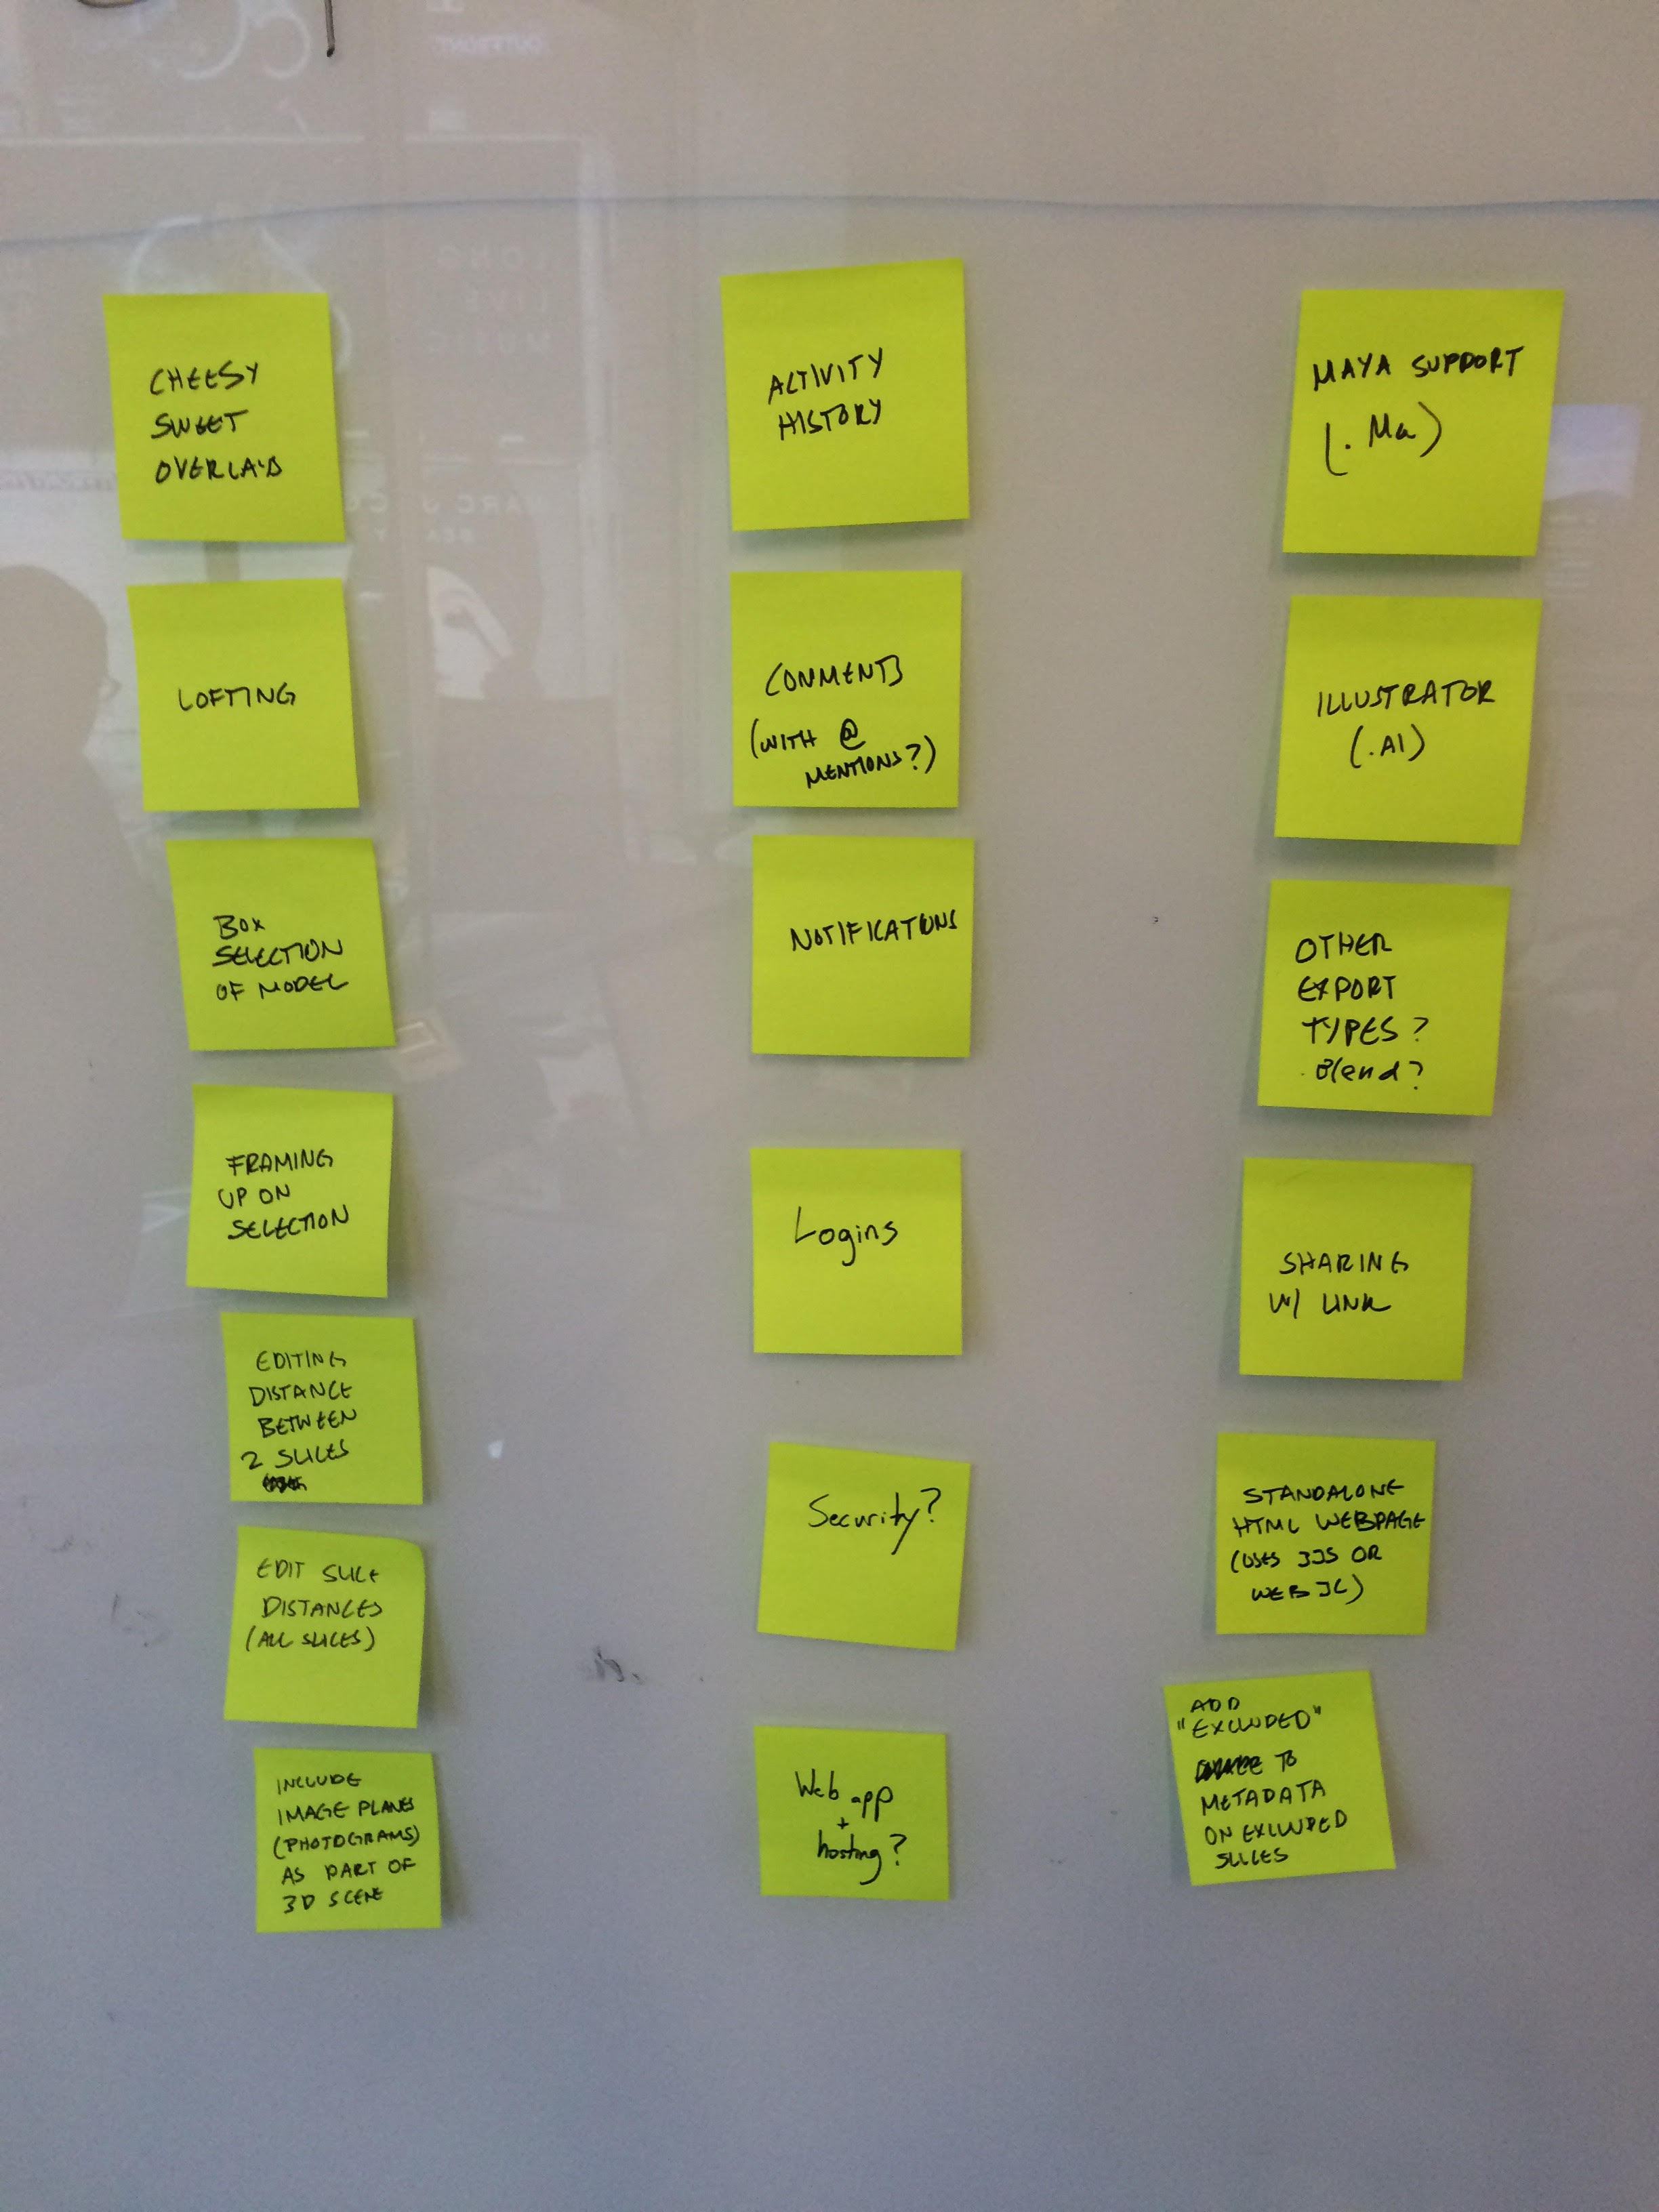 CHEESY
SWEET
OVERLAID
LOFTING
BOX
SELECTION
OF MODEL
FRAMING
UP ON
SELECTION
EDITING
DISTANCE
BETWEEN
2 SLICES
EDIT SLICE
DISTANCES
(ALL SLICES)
INCLUDE
IMAGE PLANES
(PHOTOGRAMS)
AS PART OF
3D SCENE
ACTIVITY
HISTORY
COMMENTS
(WITH @
MENTIONS?)
NOTIFICATIONS
Logins
Security?
Web app
+
hosting?
MAYA SUPPORT
(.Ma)
ILLUSTRATOR
(.AI)
OTHER
EXPORT
TYPES?
.Blend?
SHARING
W/ LINK
STANDALONE
HTML WEBPAGE
(USES 3JS OR
WEB
ADD
"EXCLUDED"
TO
METADATA
ON EXCLUDED
SLICES
LONG
LIVE
MUSIC